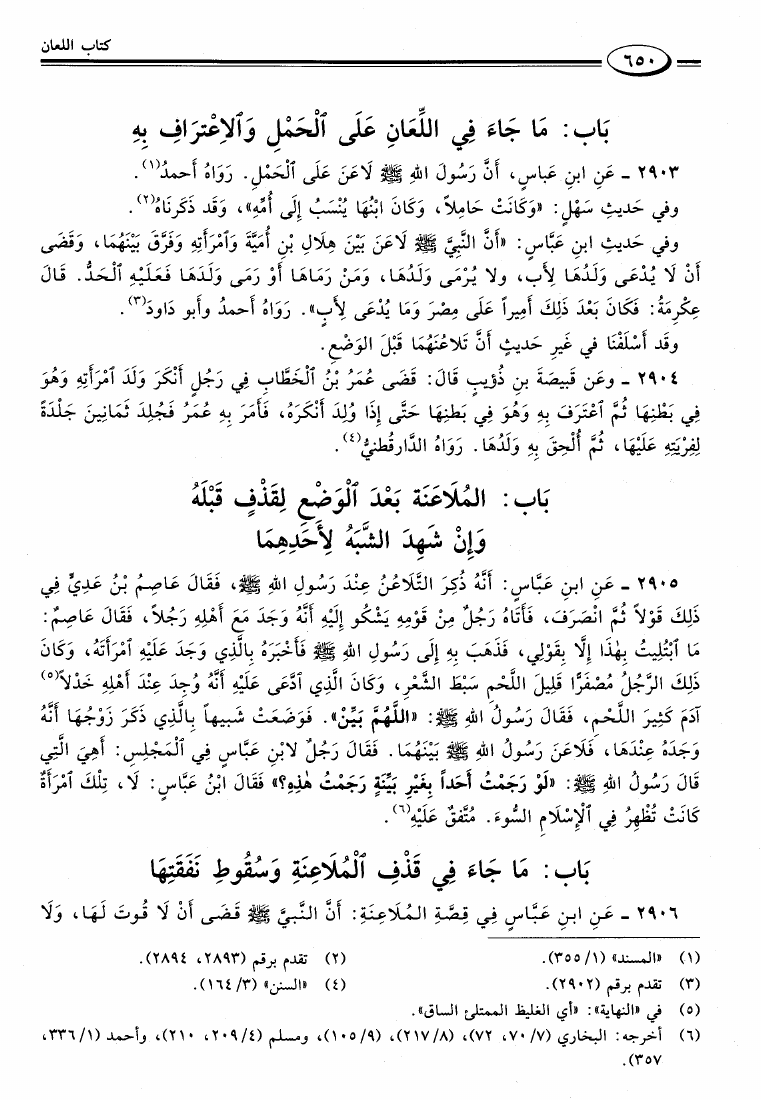 كتاب اللعان
٦٥٠
بَاب: مَا جَاءَ فِي اللِّعَانِ عَلَى ٱلْحَمْلِ وَٱلِاعْتِرَافِ بِهِ
٢٩٠٣ ـ عَنِ ابنِ عَباسٍ، أَنَّ رَسُولَ اللهِ ﷺ لَاعَنَ عَلَى ٱلْحَمْلِ. رَوَاهُ أَحمدُ(١).
وفي حَديثِ سَهْلٍ: «وَكَانَتْ حَامِلاً، وَكَانَ ابْنُهَا يُنْسَبُ إِلَى أُمِّهِ»، وَقَد ذَكَرنَاهُ(٢).
وفي حَديثِ ابنِ عَبَّاسٍ: «أَنَّ النَّبِيَّ ﷺ لَاعَنَ بَيْنَ هِلَالِ بْنِ أُمَيَّةَ وَٱمْرَأَتِهِ وَفَرَّقَ بَيْنَهُمَا، وَقَضَى
أَنْ لَا يُدْعَى وَلَدُهَا لِأَبٍ، ولا يُرْمَى وَلَدُهَا، وَمَنْ رَمَاهَا أَوْ رَمَى وَلَدَهَا فَعَلَيْهِ ٱلْحَدُّ. قَالَ
عِكْرِمَةُ: فَكَانَ بَعْدَ ذَلِكَ أَمِيراً عَلَى مِصْرَ وَمَا يُدْعَى لِأَبٍ». رَوَاهُ أَحمدُ وأَبو دَاودَ(٣).
وقَد أَسْلَفْنَا في غَيرِ حَديثٍ أَنَّ تَلَاعُنَهُمَا قَبْلَ الوَضْعِ.
٢٩٠٤ ـ وعَن قَبيصَةَ بنِ ذُؤيبٍ قَالَ: قَضَى عُمَرُ بْنُ ٱلْخَطَّابِ فِي رَجُلٍ أَنْكَرَ وَلَدَ ٱمْرَأَتِهِ وَهُوَ
فِي بَطْنِهَا ثُمَّ ٱعْتَرَفَ بِهِ وَهُوَ فِي بَطنِهَا حَتَّى إِذَا وُلِدَ أَنْكَرَهُ، فَأَمَرَ بِهِ عُمَرُ فَجُلِدَ ثَمَانِينَ جَلْدَةً
لِفِرْيَتِهِ عَلَيْهَا، ثُمَّ أُلْحِقَ بِهِ وَلَدُهَا. رَوَاهُ الدَّارقُطنيُّ(٤).
بَاب: المُلَاعَنَة بَعْدَ ٱلْوَضْعِ لِقَذْفٍ قَبْلَهُ
وَإِنْ شَهِدَ الشَّبَهُ لِأَحَدِهِمَا
٢٩٠٥ ـ عَنِ ابنِ عَبَّاسٍ: أَنَّهُ ذُكِرَ التَّلَاعُنُ عِنْدَ رَسُولِ اللهِ ﷺ، فَقَالَ عَاصِمُ بْنُ عَدِيٍّ فِي
ذَلِكَ قَوْلاً ثُمَّ انْصَرَفَ، فَأَتَاهُ رَجُلٌ مِنْ قَوْمِهِ يَشْكُو إِلَيْهِ أَنَّهُ وَجَدَ مَعَ أَهْلِهِ رَجُلاً، فَقَالَ عَاصِمٌ:
مَا ٱبْتُلِيتُ بِهٰذَا إِلَّا بِقَوْلِي، فَذَهَبَ بِهِ إِلَى رَسُولِ اللهِ ﷺ فَأَخْبَرَهُ بِالَّذِي وَجَدَ عَلَيْهِ ٱمْرَأَتَهُ، وَكَانَ
ذَلِكَ الرَّجُلُ مُصْفَرًّا قَلِيلَ اللَّحْمِ سَبْطَ الشَّعْرِ، وَكَانَ الَّذِي ٱدَّعَى عَلَيْهِ أَنَّهُ وُجِدَ عِنْدَ أَهْلِهِ خَدْلاً(٥)
آدَمَ كَثِيرَ اللَّحْمِ، فَقَالَ رَسُولُ اللهِ ﷺ: «اللَّهُمَّ بَيِّنْ». فَوَضَعَتْ شَبِيهاً بِالَّذِي ذَكَرَ زَوْجُهَا أَنَّهُ
وَجَدَهُ عِنْدَهَا، فَلَاعَنَ رَسُولُ اللهِ ﷺ بَيْنَهُمَا. فَقَالَ رَجُلٌ لابْنِ عَبَّاسٍ فِي ٱلْمَجْلِسِ: أَهِيَ الَّتِي
قَالَ رَسُولُ اللهِ ﷺ: «لَوْ رَجَمْتُ أَحَداً بِغَيْرِ بَيِّنَةٍ رَجَمْتُ هٰذِهِ؟» فَقَالَ ابْنُ عَبَّاسٍ: لَا، تِلْكَ ٱمْرَأَةٌ
كَانَتْ تُظْهِرُ فِي ٱلْإِسْلَامِ السُّوءَ. مُتَّفقٌ عَلَيْهِ(٦).
بَاب: مَا جَاءَ فِي قَذْفِ ٱلْمُلَاعِنَةِ وَسُقُوطِ نَفَقَتِهَا
٢٩٠٦ ـ عَنِ ابنِ عَبَّاسٍ فِي قِصَّةِ المُلَاعِنَةِ: أَنَّ النَّبيَّ ﷺ قَضَى أَنْ لَا قُوتَ لَهَا، وَلَا
(١) «المسند» (١/ ٣٥٥).
(٢) تقدم برقم (٢٨٩٣، ٢٨٩٤).
(٣) تقدم برقم (٢٩٠٢).
(٤) «السنن» (٣/ ١٦٤).
(٥) في «النهاية»: «أي الغليظ الممتلئ الساق».
(٦) أخرجه: البخاري (٧/ ٧٠، ٧٢)، (٨/ ٢١٧)، (٩/ ١٠٥)، ومسلم (٤/ ٢٠٩، ٢١٠)، وأحمد (١/ ٣٣٦،
٣٥٧).